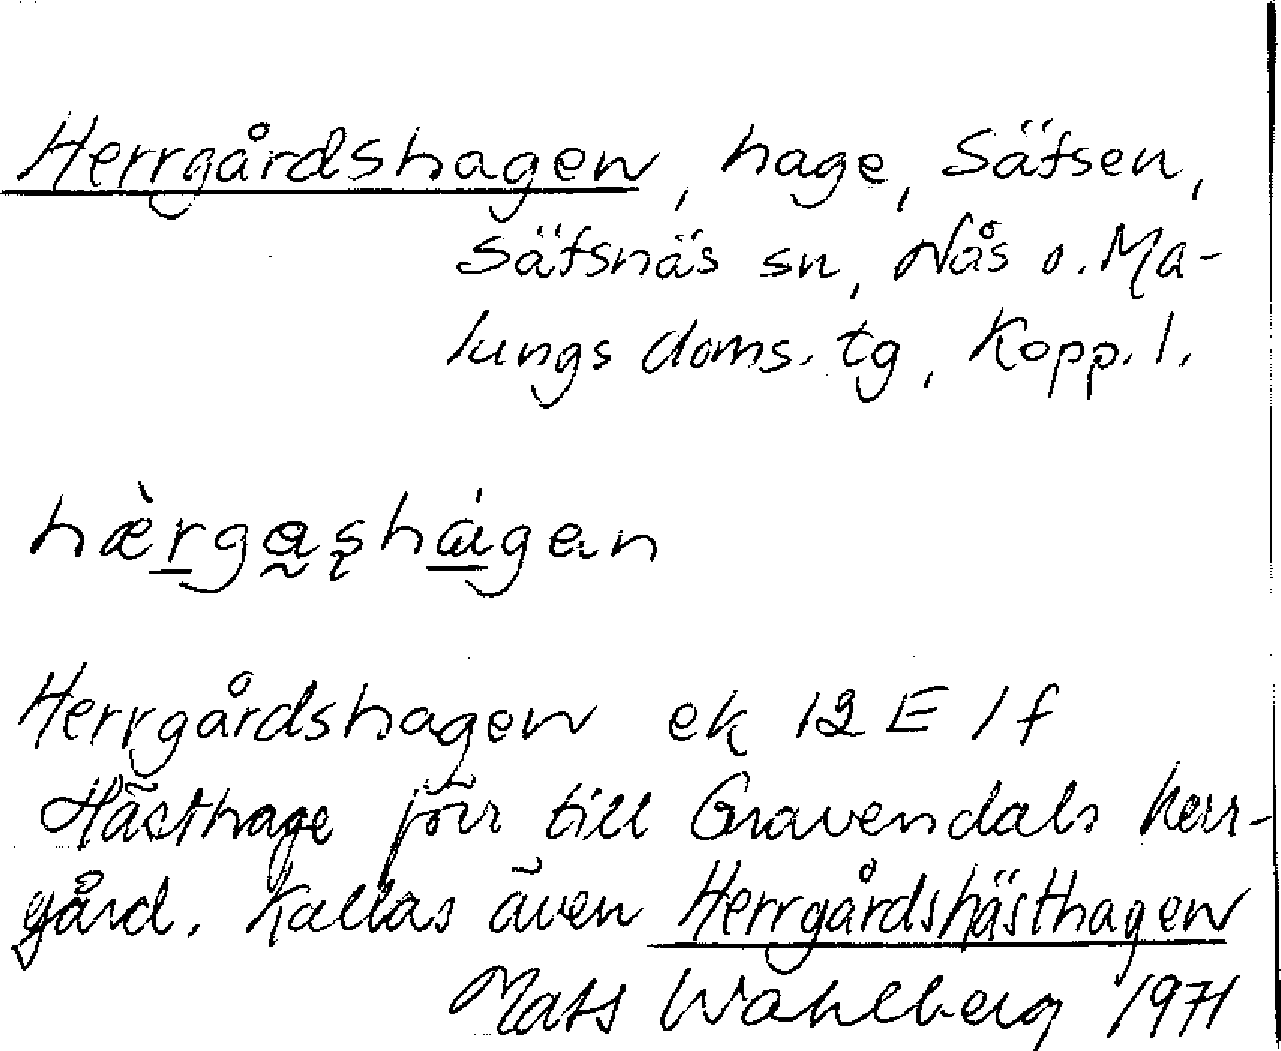 Herrgårdshagen, hage, Säfsen,
Säfsnäs sn, Nås o. Ma-
lungs doms. tg, Kopp. l.
hæ̀rga̰ṣhágan
Herrgårdshagen ek 12 E 1 f
Hästhage förr till Gravendals herr-
gård. Kallas även Herrgårdshästhagen
Mats Wahlberg 1971